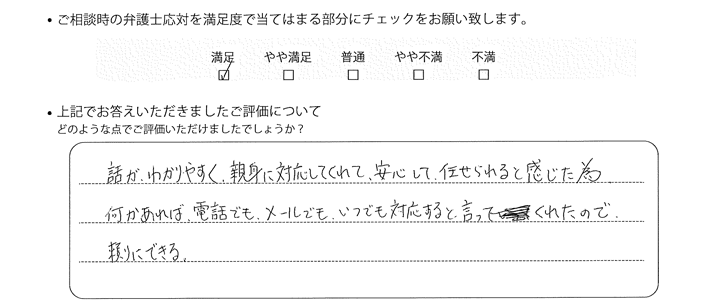 • ご相談時の弁護士応対を満足度で当てはまる部分にチェックをお願い致します。
満足 やや満足 普通 やや不満 不満
☑ □ □ □ □
• 上記でお答えいただきましたご評価について
どのような点でご評価いただけましたでしょうか？
話が、わかりやすく、親身に対応してくれて、安心して、任せられると感じた為
何かあれば、電話でも、メールでも、いつでも対応すると言ってくれたので、
頼りにできる。